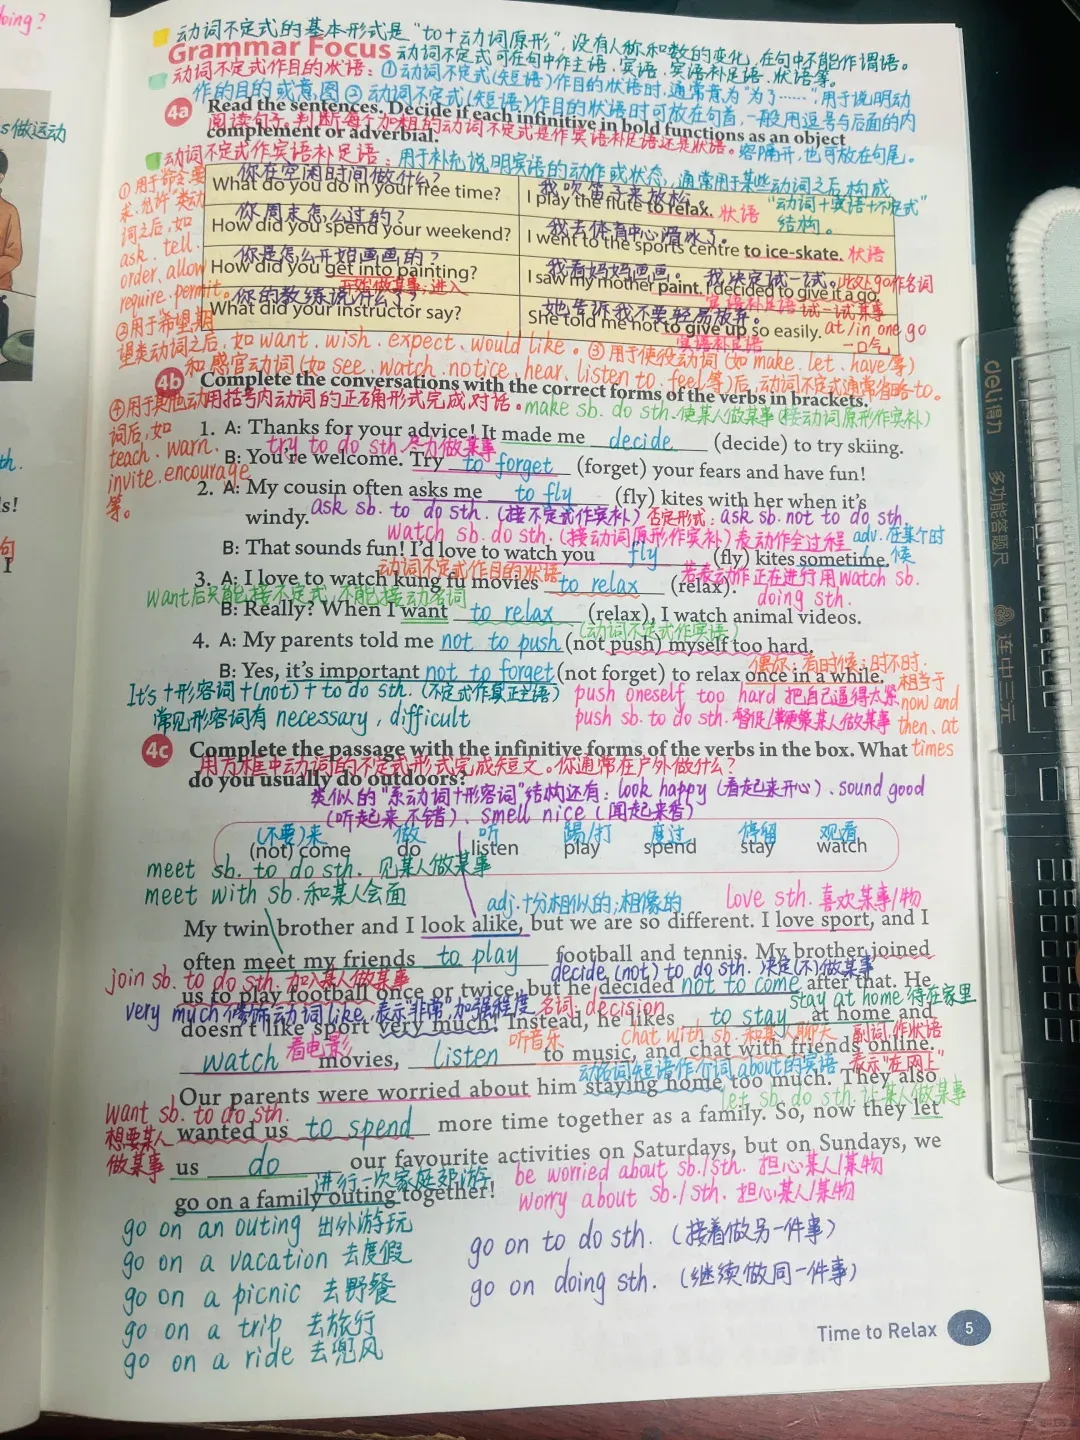 doing?
动词不定式的基本形式是“to+动词原形”,没有人称和数的变化,在句中不能作谓语。
Grammar Focus 动词不定式可在句中作主语、宾语、宾语补足语、状语等。
动词不定式作目的状语:①动词不定式(短语)作目的状语时,通常意为“为了……”,用于说明动
作的目的或意图②动词不定式(短语)作目的状语时可放在句首,一般用逗号与后面的内
容隔开,也可放在句尾。
4a Read the sentences. Decide if each infinitive in bold functions as an object
complement or adverbial.
阅读句子。判断每个加粗的动词不定式是作宾语补足语还是状语。
动词不定式作宾语补足语:用于补充说明宾语的动作或状态,通常用于某些动词之后,构成
“动词+宾语+不定式”
结构。
s做运动
①用于命令、要
求、允许类动
词之后,如
ask、tell、
order、allow
require、permit。
你在空闲时间做什么?
What do you do in your free time?
我吹笛子来放松。
I play the flute to relax. 状语
你周末怎么过的?
How did you spend your weekend?
我去体育中心滑冰了。
I went to the sports centre to ice-skate. 状语
你是怎么开始画画的?
How did you get into painting?
开始做某事;进入
我看妈妈画画。我决定试一试。此处go作名词
I saw my mother paint. I decided to give it a go.
宾语补足语 试一试某事
你的教练说什么了?
What did your instructor say?
她告诉我不要轻易放弃。
She told me not to give up so easily. at/in one go
宾语补足语 一口气
②用于希望、期
望类动词之后,如want、wish、expect、would like。③用于使役动词(如make、let、have等)
和感官动词(如see、watch、notice、hear、listen to、feel等)后,动词不定式通常省略to。
4b Complete the conversations with the correct forms of the verbs in brackets.
④用于其他动
词后,如
teach、warn、
invite、encourage
等。
用括号内动词的正确形式完成对话。make sb. do sth.使某人做某事(接动词原形作宾补)
1. A: Thanks for your advice! It made me decide (decide) to try skiing.
try to do sth.尽力做某事
B: You're welcome. Try to forget (forget) your fears and have fun!
2. A: My cousin often asks me to fly (fly) kites with her when it's
windy. ask sb. to do sth.(接不定式作宾补)否定形式:ask sb. not to do sth.
watch sb. do sth.(接动词原形作宾补)表动作全过程 adv.在某个时
候
B: That sounds fun! I'd love to watch you fly (fly) kites sometime.
动词不定式作目的状语
若表动作正在进行用watch sb.
doing sth.
3. A: I love to watch kung fu movies to relax (relax).
want后只能接不定式,不能接动名词
B: Really? When I want to relax (relax), I watch animal videos.
(动词不定式作宾语)
4. A: My parents told me not to push (not push) myself too hard.
偶尔;有时候;时不时.
B: Yes, it's important not to forget (not forget) to relax once in a while.
相当于
now and
then、at
times
It's+形容词+(not)+to do sth.(不定式作真正主语)
常见形容词有necessary、difficult
push oneself too hard 把自己逼得太紧
push sb. to do sth. 督促/鞭策某人做某事
4c Complete the passage with the infinitive forms of the verbs in the box. What
do you usually do outdoors?
用方框中动词的不定式形式完成短文。你通常在户外做什么?
类似的“系动词+形容词”结构还有:look happy(看起来开心)、sound good
(听起来不错)、smell nice(闻起来香)
(不要)来 做 听 踢/打 度过 停留 观看
(not) come do listen play spend stay watch
meet sb. to do sth. 见某人做某事
meet with sb.和某人会面
adj.十分相似的;相像的
love sth.喜欢某事/物
My twin brother and I look alike, but we are so different. I love sport, and I
often meet my friends to play football and tennis. My brother joined
join sb. to do sth.加入某人做某事
decide (not) to do sth.决定(不)做某事
us to play football once or twice, but he decided not to come after that. He
very much修饰动词like,表示非常,加强程度 名词:decision
stay at home 待在家里
doesn't like sport very much! Instead, he likes to stay at home and
看电影 听音乐 chat with sb.和某人聊天 副词,作状语
watch movies, listen to music, and chat with friends online.
动名词短语作介词about的宾语 表示“在网上”
Our parents were worried about him staying home too much. They also
want sb. to do sth.
想要某人
做某事
let sb. do sth.让某人做某事
wanted us to spend more time together as a family. So, now they let
us do our favourite activities on Saturdays, but on Sundays, we
进行一次家庭郊游
go on a family outing together!
be worried about sb./sth. 担心某人/某物
worry about sb./sth. 担心某人/某物
go on an outing 出外游玩
go on a vacation 去度假
go on a picnic 去野餐
go on a trip 去旅行
go on a ride 去兜风
go on to do sth.(接着做另一件事)
go on doing sth.(继续做同一件事)
Time to Relax 5
deli得力
多功能答题尺
连中三元